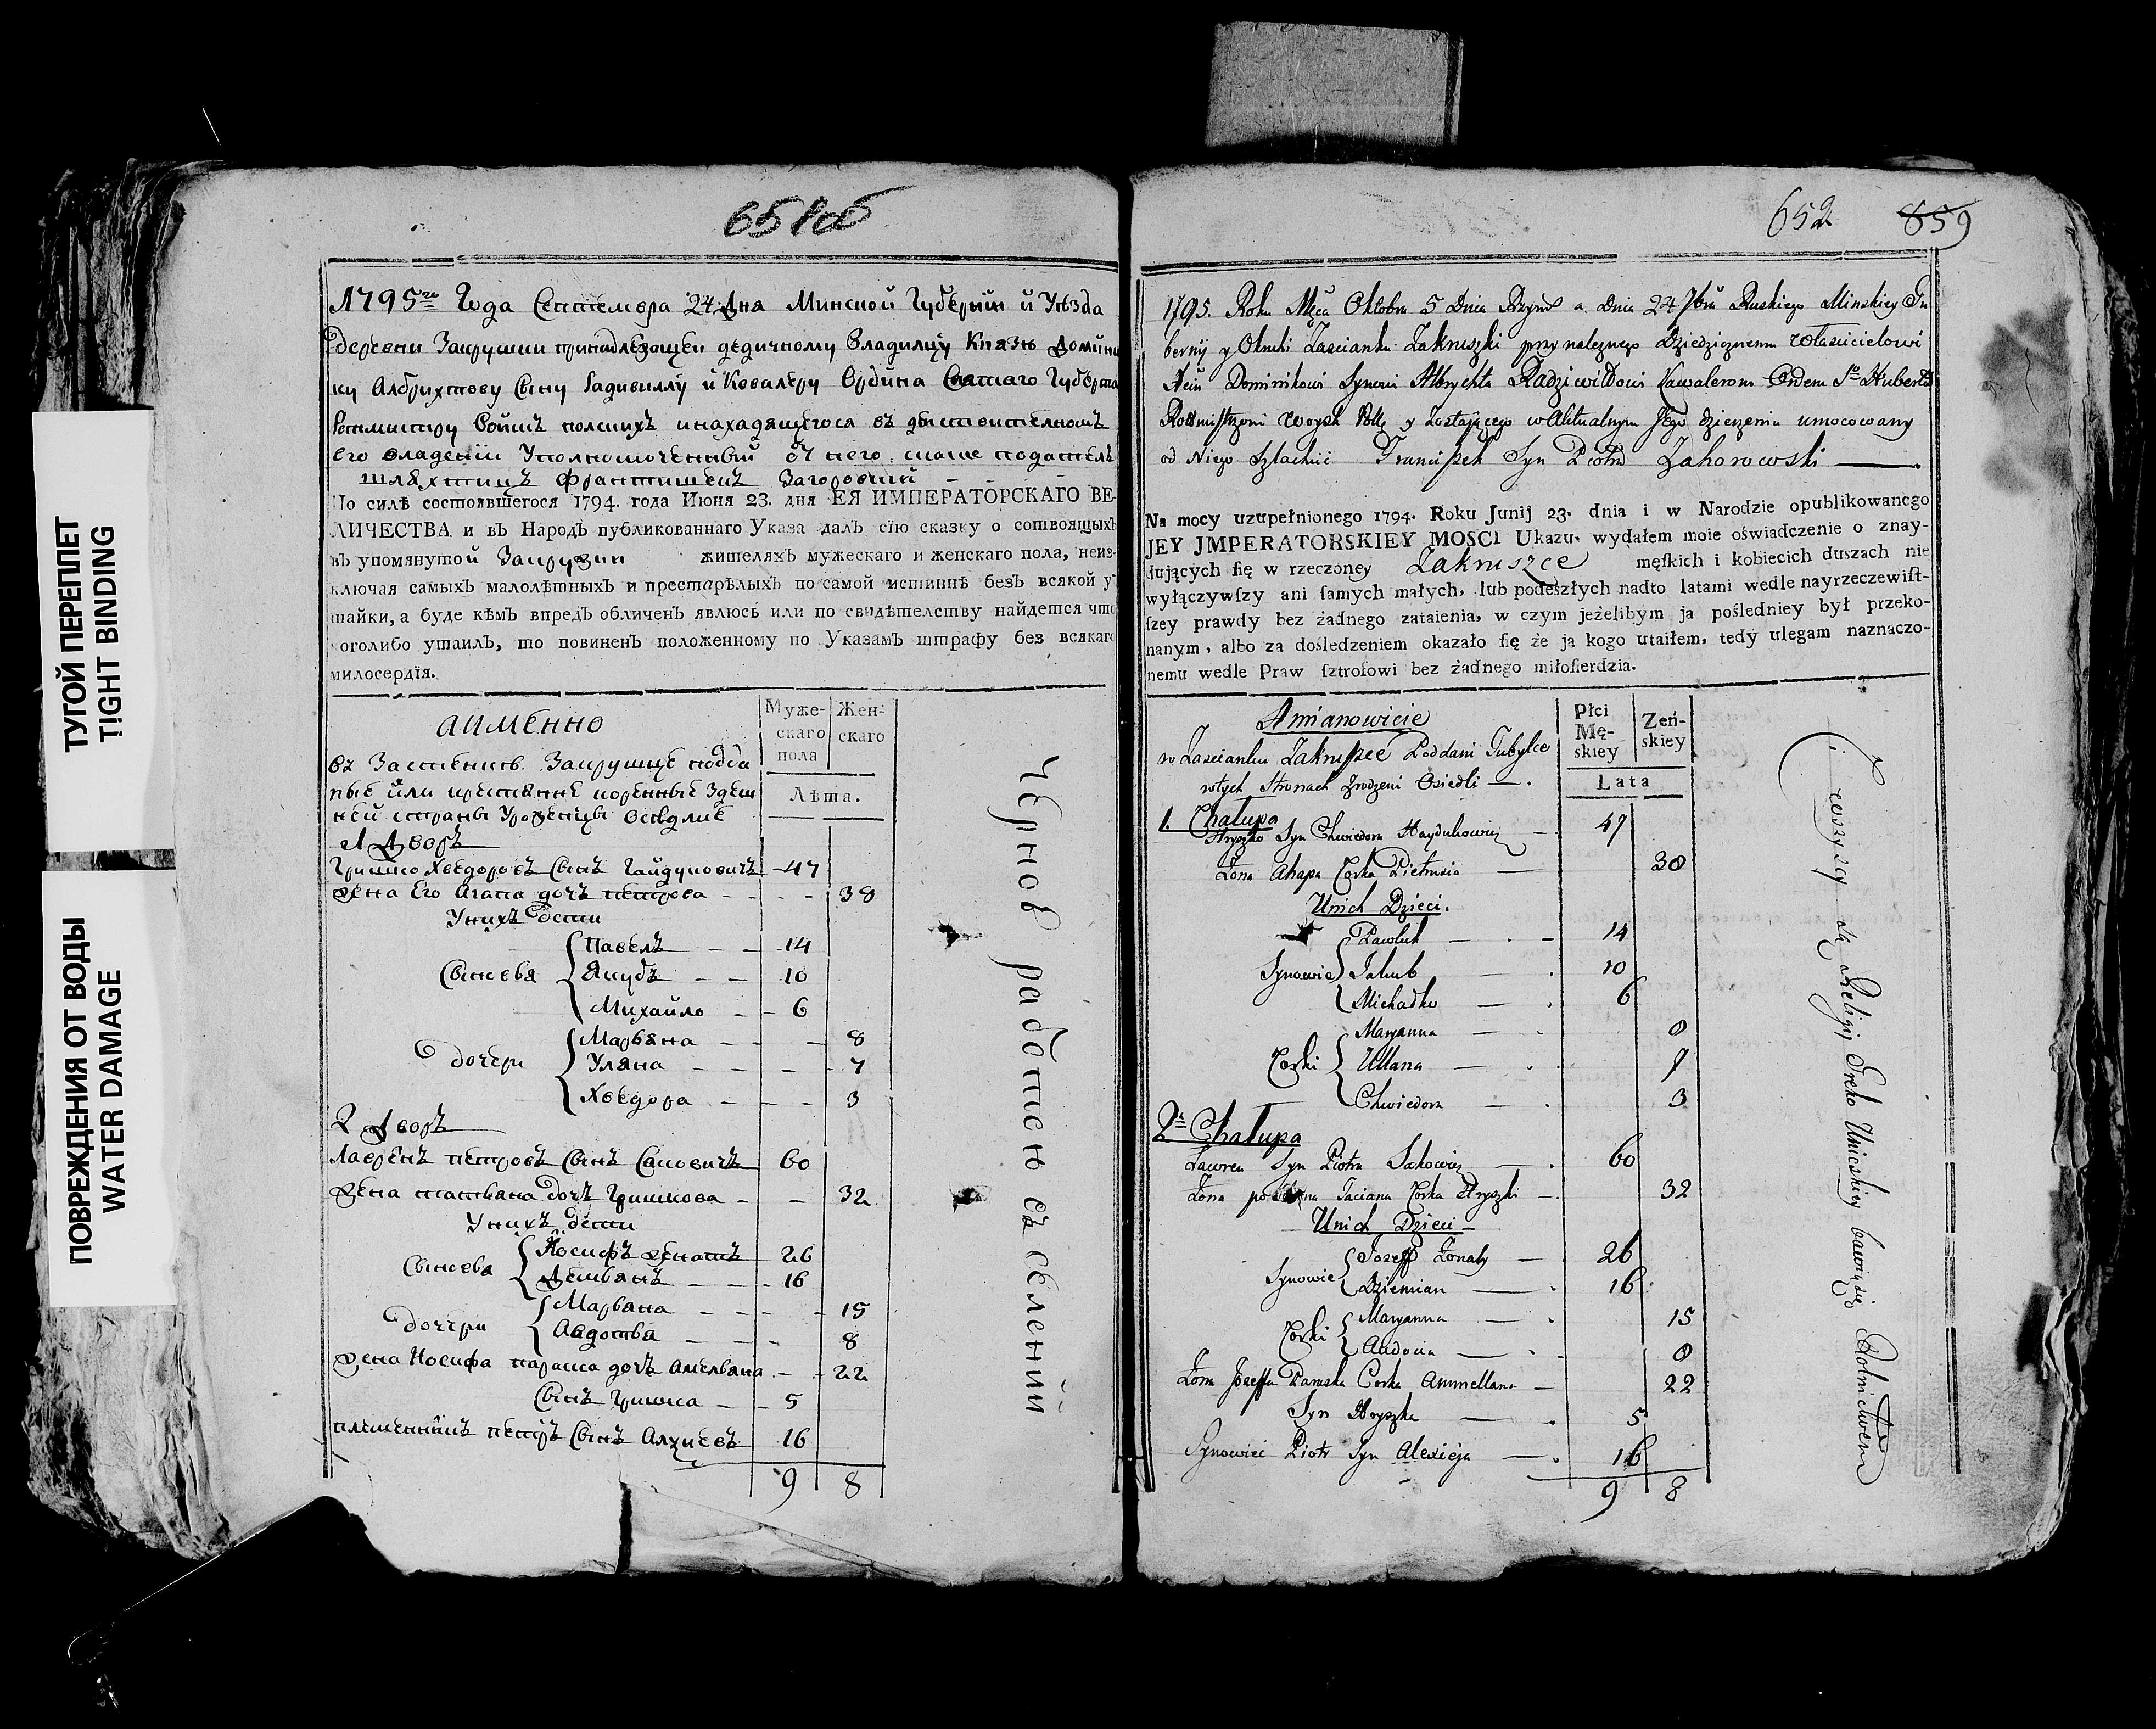 ТУГОЙ ПЕРЕПЛЕТ
TIGHT BINDING
ПОВРЕЖДЕНИЯ ОТ ВОДЫ
WATER DAMAGE
651об
1795го Года Сентембра 24 Дня Минской Губернии и Уезда
деревни Закрушки принадлежащей дедичному Владилцу Князю Домини
ку Албрихтову Сыну Радивиллу и Ковалеру Ордина Святаго Губерта
Ротмистру Войскъ полскихъ инахадящегося въ действителномъ
его владении Уполномоченный отъ него податель
шляхтицъ Франтишекъ Загоровский
По силѣ состоявшегося 1794. года Июня 23. дня ЕЯ ИМПЕРАТОРСКАГО ВЕ-
ЛИЧЕСТВА и въ Народъ публикованнаго Указа далъ сїю сказку о сотвоящыхъ
въ упомянутой Закрузки жителяхъ мужескаго и женскаго пола, неиз-
ключая самыхъ малолѣтныхъ и престарѣлыхъ по самой истиннѣ безъ всякой у
тайки, а буде кѣмъ впредь обличенъ явлюсь или по свидѣтелству найдется что
коголибо утаилъ, то повиненъ положенному по Указамъ штрафу без всякаго
милосердїя.
аименно
Муже-
скаго
пола
Жен-
скаго
Лѣта.
въ Застенкѣ Закрушце подда
ные или крестянне коренные Здеш
ней страны Уроженцы оседлие
1 Дворъ
Гришко Хведоровъ Сынъ Гайдуковичъ -47
Жена Его Агапа дочъ петрова - - - 38
Унихъ дети
Сыновья
Павелъ - - 14
Якубъ - - 10
Михайло - - 6
дочери
Марьяна - - - 8
Уляна - - - - 7
Хведора - - - 3
2 Дворъ
Лаврѣнъ петровъ Сынъ Саковичъ 60
Жена татьяна дочъ Гришкова - - 32
Унихъ дети
Сыновья
Иосифъ женатъ 26
Демьянъ - - - 16
дочери
Марьяна - - - - 15
Авдотья - - - 8
Жена Иосифа параска дочъ Амельяна - - 22
Сынъ Гришка - - 5
племенникъ петръ Сынъ Алхиевъ 16
9 8
Чернов работою съ селений
652 859
1795. Roku Mca Oktobra 5 Dnia Rzym a Dnia 24 7bra Ruskiego Minskiey Gu
bernij y Okruhi Zascianku Zakruszki przynaleznego Dziedzicznemu Włascicielowi
Xciu Dominikowi Synowi Albrychta Radziwiłłowi Kawalerowi Orderu Sgo Huberta
Rotmistrzowi Woysk Polk y Zostaiącego w Aktualnym Jego dzierzeniu umocowany
od Niego Szlachcic Franciszek Syn Piotra Zahorowski
Na mocy uzupełnionego 1794. Roku Junij 23. dnia i w Narodzie opublikowanego
JEY JMPERATORSKIEY MOSCI Ukazu, wydałem moie oświadczenie o znay-
dujących ſię w rzeczoney Zakruszce męſkich i kobiecich duszach nie
wyłączywſzy ani ſamych małych, lub podeſzłych nadto latami wedle nayrzeczewiſt-
ſzey prawdy bez żadnego zataienia, w czym jeżelibym ja poſledniey był przeko-
nanym, albo za dośledzeniem okazało ſię że ja kogo utaiłem, tedy ulegam naznaczo-
nemu wedle Praw ſztrofowi bez żadnego miłoſierdzia.
Amianowicie
Płci
Mę-
skiey
Zeń-
skiey
Lata
w Zascianku Zakruszce Poddani Tubylce
wtych Stronach Zrodzeni Osiedli
1. Chałupa
Hryszko Syn Chwiedora Haydukowicz - 47
Zona Ahapa Corka Pietrusia - 38
Unich Dzieci.
Synowie
Pawluk - - 14
Jakub - 10
Michałko - 6
Corki
Maryanna - 8
Ullana - 7
Chwiedora - 3
2a Chałupa
Lawren Syn Piotra Sakowicz - 60
Zona Taciana Corka Hryszki - 32
Unich Dzieci
Synowie
Jozeff Zonaty - 26
Dziemian - 16
Corki
Maryanna - 15
Audocia - 8
Zona Jozeffa Paraska Corka Ammellana - 22
Syn Hryszka - 5
Synowiec Piotr Syn Alexieja - 16
9 8
i wszyscy są Religij Greko Unickiey bawią się Rolnictwem